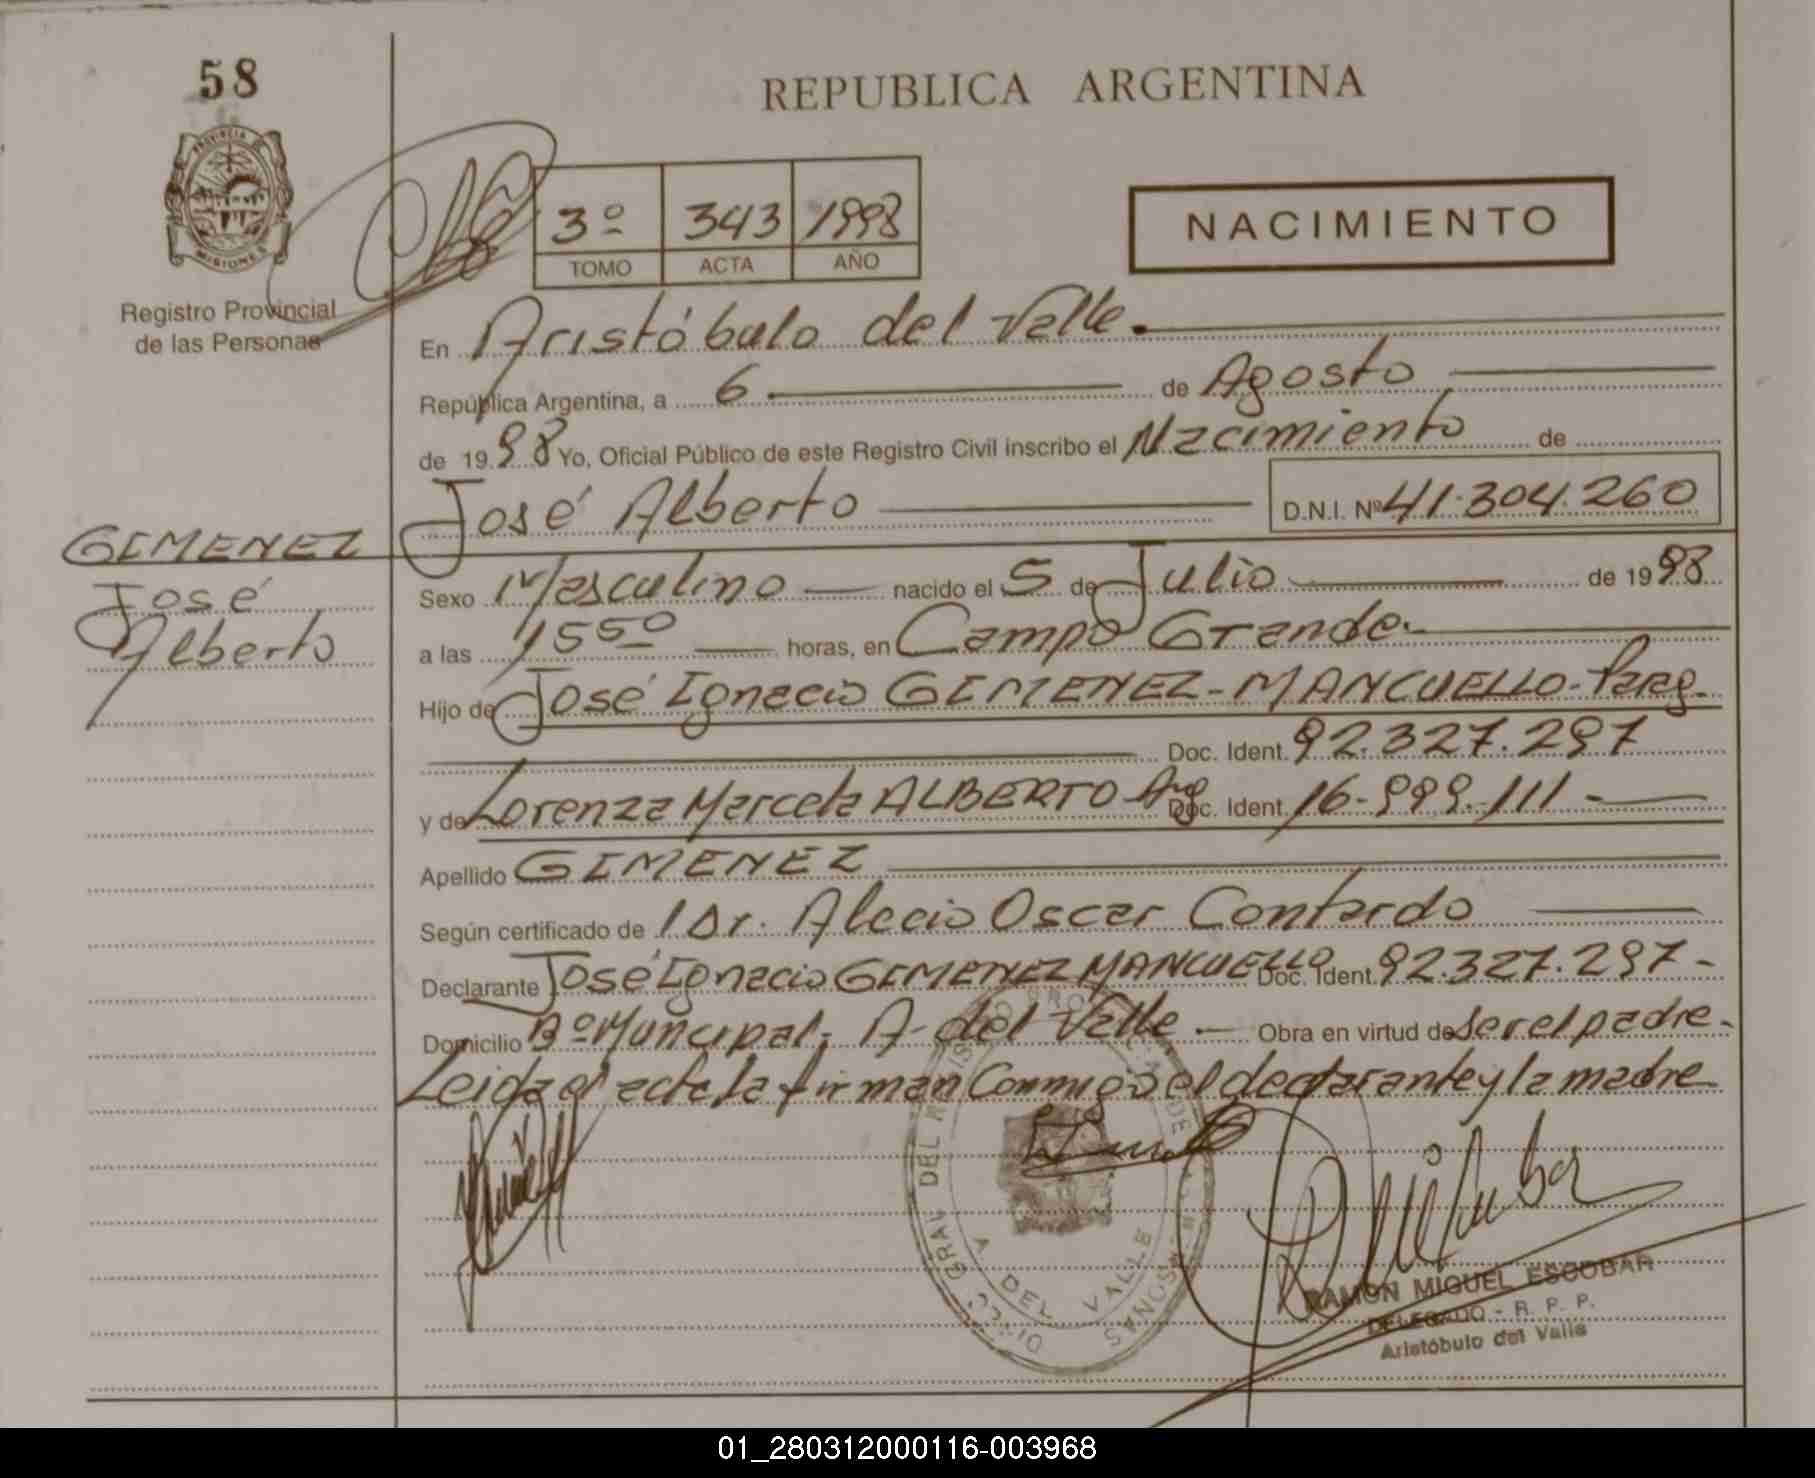 58
REPUBLICA ARGENTINA
PROVINCIA DE
MISIONES
Registro Provincial
de las Personas
3º 343 1998
TOMO ACTA AÑO
NACIMIENTO
En Aristóbulo del Valle.
República Argentina, a 6 de Agosto
de 1998 Yo, Oficial Público de este Registro Civil inscribo el Nacimiento de
José Alberto D.N.I. Nº 41.304.260
GIMENEZ
José
Alberto
Sexo Masculino nacido el 5 de Julio de 1998
a las 15⁵⁰ horas, en Campo Grande.
Hijo de José Ignacio GIMENEZ-MANCUELLO-Parag.
Doc. Ident. 92.327.297
y de Lorenza Marcela ALBERTO Arg Doc. Ident. 16-999.111-
Apellido GIMENEZ
Según certificado de 1 Dr. Alecio Oscar Contardo
Declarante José Ignacio GIMENEZ MANCUELLO Doc. Ident. 92.327.297-
Domicilio Bº Municipal. A- del Valle.- Obra en virtud de ser el padre.
Leida el acta la firman Conmigo el declarante y la madre
A. DEL VALLE
RAMON MIGUEL ESCOBAR
DELEGADO - R. P. P.
Aristóbulo del Valle
01_280312000116-003968